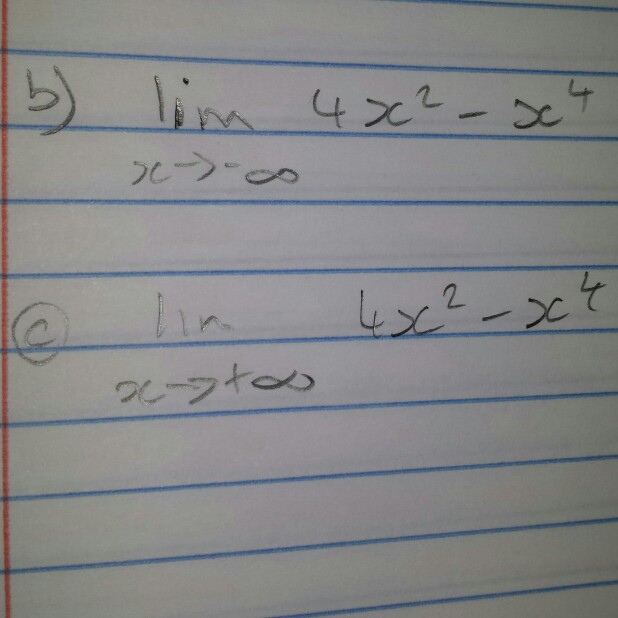 b) lim 4x² - x⁴
x→-∞
ⓒ lim 4x² - x⁴
x→+∞